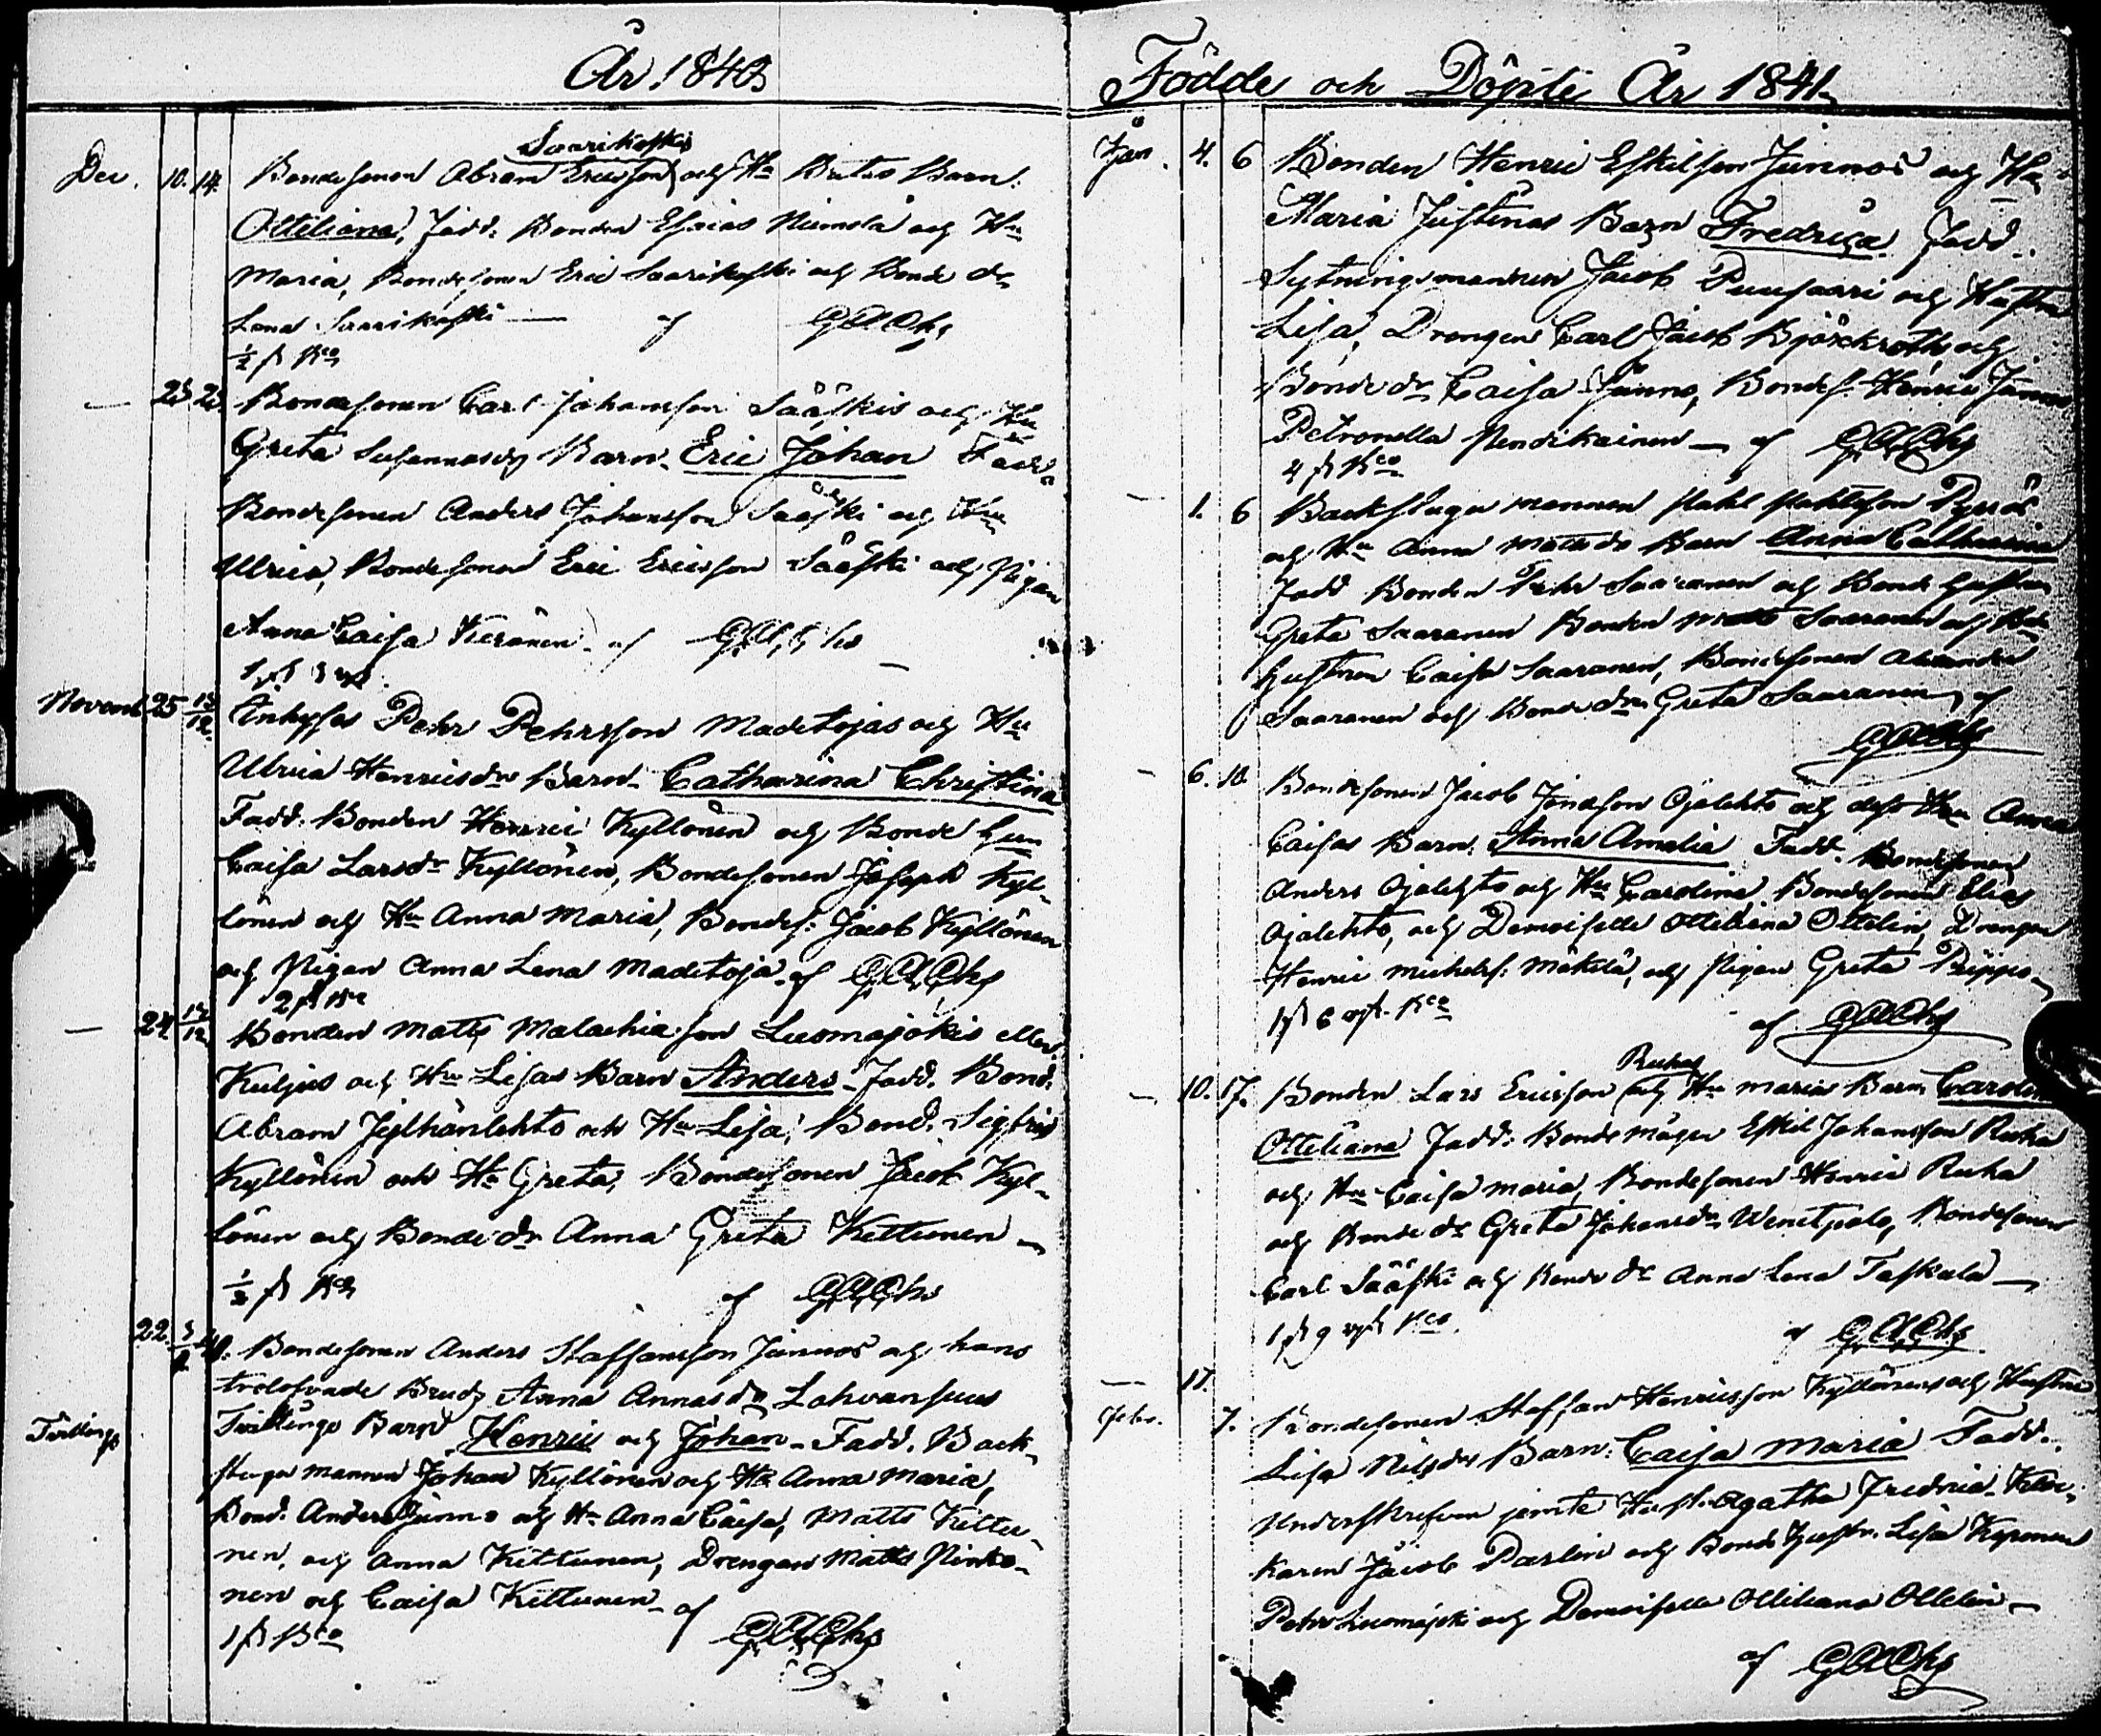 År 1840
Saarikoskis
Dec. 10. 14. Bondesonen Abram Ericsson och Hu Britas Barn:
Ottiliana, Fadd: Bonden Esaias Niemelä och Hu
Maria, Bondesonen Eric Saarikoski och Bonde dr
Lena Saarikoski — af
— 23 25 Bondesonen Carl Johansson Sääskis och Hu
Greta Susannasdr Barn. Eric Johan Fadd.
Bondesonen Anders Johansson Sääski och Hu
Ulrica, Bondesonen Eric Ericsson Sääski och Pigan
Anna Caisa Keränen af
Novemb 25 13/12 Enhyses Pehr Pehrsson Madetojas och Hu
Ulrica Henricsdr Barn. Catharina Christina
Fadd. Bonden Henric Kyllönen och Bonde hu
Caisa Larsdr Kyllönen, Bondesonen Joseph Kyl-
lönen och Hu Anna Maria, Bondes: Jacob Kyllönen
och Pigan Anna Lena Madetoja. af
— 24 13/12 Bonden Matts Malachiasson Luomajokis eller
Kuljus och Hu Lisas Barn Anders. Fadd. Bond.
Abram Jylhänlehto och Hu Lisa, Bond. Sigfrid
Kyllönen och Hu Greta, Bondesonen Jacob Kyl-
lönen och Bonde dr Anna Greta Kettunen —
af
22. Bondesonen Anders Staffansson Junnos och hans
trolofvade Brud Anna Annasdr Lohvansuus
Tvillings Tvillings Barn Henric och Johan. Fadd. Back-
stugu mannen Johan Kyllönen och Hu Anna Maria,
Bond. Anders Junno och Hu Anna Caisa, Matts Kettu-
nen, och Anna Kettunen, Drengen Matts
nen och Caisa Kettunen. af
Födde och Döpte År 1841
Jan. 4. 6 Bonden Henric Eskilson Junnos och Hu
Maria Justinas Barn Fredrica. Fadd.
Sytningsmannen Jacob Puusaari och Hustru
Lisa, Drengen Carl Jacob Björckroth, och
Bonde dr Caisa Junno, Bondes. Henric Junno
Petronella Pendikainen — af
— 1. 6 Backstugu mannen Pahl Pahlsson Pyrrös
och Hu Anna Mattsdr Barn Anna Catharina
Fadd Bonden Pehr Saaranen och Bonde hustrun
Greta Saaranen Bonden Matts Saaranen och Bde
hustrun Caisa Saaranen, Bondesonen Alexander
Saaranen och Bonde dr Greta Saaranen, af
— 6. 10 Bondesonen Jacob Jonasson Ojalehto och dess Hu Anna
Caisas Barn. Anna Amalia Fadd. Bondesonen
Anders Ojalehto och Hu Carolina, Bondesonen Elias
Ojalehto, och Demoiselle Ottiliana Ottelin, Drengen
Henric Michelss: Mäkelä, och Pigan Greta Piippo.
af
Ruhas
— 10. 17. Bonden Lars Ericsson och Hu Marias Barn Carolina
Ottiliana Fadd: Bonde mågen Eskil Johansson Ruha
och Hu Caisa Maria, Bondesonen Henric Ruha
och Bonde dr Greta Johansdr Wenetpalo, Bondesonen
Carl Sääski och Bonde dr Anna Lena Taskala —
af
— 17.
Febr. 7. Bondesonen Staffan Henricsson Kyllönens och Hustru
Lisa Nilsdrs Barn. Caisa Maria Fadd.
Underskrifven jemte Hust. Agatha Fredrica. Kloc-
karen Jacob Parlin och Bonde hustr. Lisa Kyrönen
Petter Luomajoki och Demoiselle Ottiliana Ottelin —
af